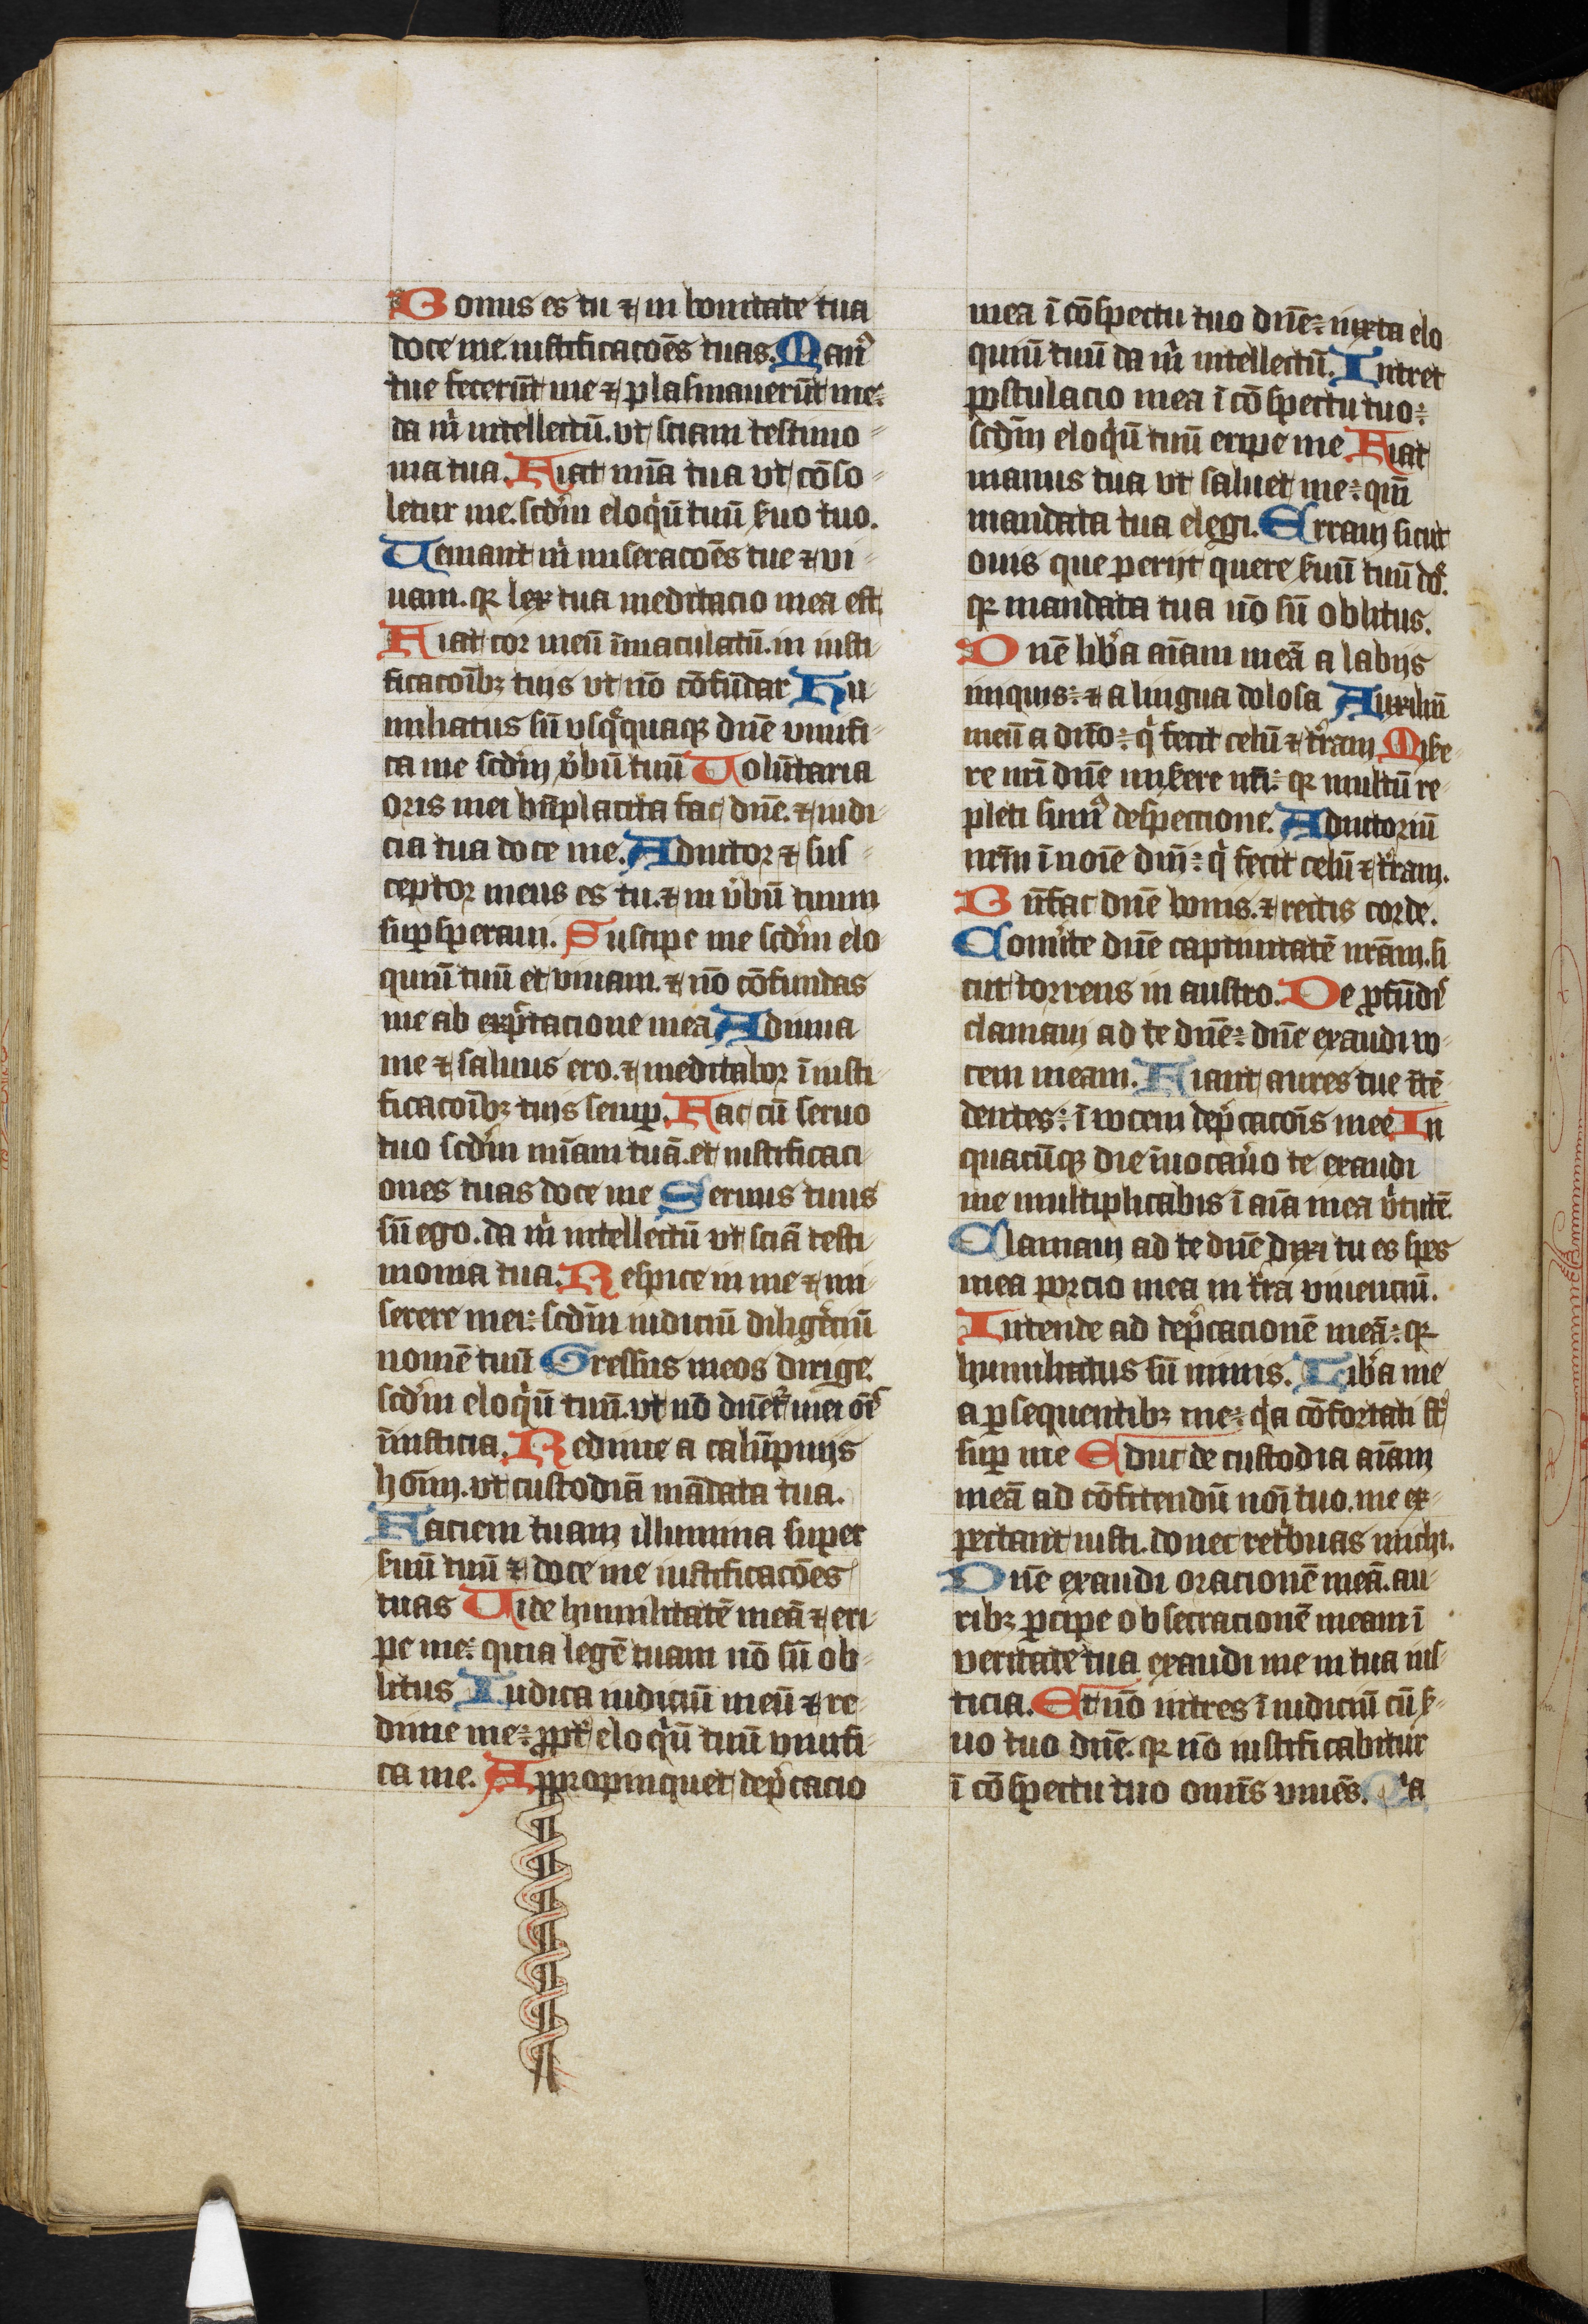 Bonus es tu ⁊ in bonitate tua
doce me iustificacoēs tuas. Manꝰ
tue fecerūt me ⁊ plasmauerūt me:
da m̄ intellectū. vt sciam testimo
nia tua. Fiat mīa tua vt cōso
letur me. scdm̄ eloqūi tuū s̄uo tuo.
Ueniant m̄ miseracoēs tue ⁊ vi
uam. qr lex tua meditacio mea est.
Fiat cor meū īmaculatū. in iusti
ficacoībꝫ tuis vt nō cōfūdar Hu
miliatus sū vsqꝫquaqꝫ dnē viuifi
ca me scdm̄ v̄bū tuū Uolūtaria
oris mei bn̄placita fac dnē. ⁊ iudi
cia tua doce me. Adiutor ⁊ sus
ceptor meus es tu. ⁊ in v̄bū tuum
suꝑsperaui. Suscipe me scdm̄ elo
quiū tuū et viuam. ⁊ nō cōfundas
me ab exp̄ctacione mea Adiuua
me ⁊ saluus ero. ⁊ meditabor ī iusti
ficacoībꝫ tuis semꝑ. Fac cū seruo
tuo scdm̄ mīam tuā. et iustificaci
ones tuas doce me Seruus tuus
sū ego. da m̄ intellectū vt sciā testi
monia tua. Respice in me ⁊ mi
serere mei: scdm̄ iudiciū diligēciū
nomē tuū Gressus meos dirige
scdm̄ eloqūi tuū. vt nō dn̄etʳ mei oīs
iniusticia. Redime a calūpniis
hoīm. vt custodiā mādata tua.
Faciem tuam illumina super
s̄uū tuū ⁊ doce me iustificacōes
tuas Uide humilitatē meā ⁊ eri
pe me: quia legē tuam nō sū ob
litus Iudica iudiciū meū ⁊ re
dime me: ꝓpt̄ eloqūi tuū viuifi
ca me. Appropinquet dep̄cacio
mea ī cōspectu tuo dnē: iuxta elo
quiū tuū da m̄ intellectū. Intret
postulacio mea ī cōspectu tuo:
scdm̄ eloqūi tuū eripe me Fiat
manus tua vt saluet me: qm̄
mandata tua elegi. Erraui sicut
ouis que perijt quere s̄uū tuū dō.
qr mandata tua nō sū oblitus.
Dnē lib̄a aīam meā a labijs
iniquis: ⁊ a lingua dolosa Auxiliū
meū a dn̄o: q̄ fecit celū ⁊ t̄ram Mise
re nr̄i dnē mis̄ere nr̄i: qr multū re
pleti sumꝰ despectione. Adiutoriū
nr̄m ī noīe dn̄i: q̄ fecit celū ⁊ t̄ram.
Bn̄fac dnē bonis. ⁊ rectis corde.
Conūte dnē captiuitatē nrām. si
cut torrens in austro. De ꝓfūdis
clamaui ad te dnē: dnē exaudi vo
cem meam. Fiant aures tue ītē
dentes: ī vocem dep̄cacoīs mee In
quacūqꝫ die īuocau̅o te exaudi
me multiplicabis ī aīa mea v̄tutē.
Clamaui ad te dnē dixi tu es spes
mea porcio mea in t̄ra viuenciū.
Intende ad dep̄cacionē meā: qr
humiliatus sū nimis. Lib̄a me
a ꝑsequentibꝫ me: qa cōfortati st̄
suꝑ me Educ de custodia aīam
meā ad cōfitendū noī tuo. me ex
pectant iusti. donec ret̄buas michi.
Dnē exaudi oracionē meā. au
ribꝫ ꝑcipe obsecracionē meam ī
veritate tua exaudi me in tua ius
ticia. Et nō intres ī iudiciū cū s̄
uo tuo dnē. qr nō iustificabitur
ī cōspectu tuo omīs viuēs. Qa